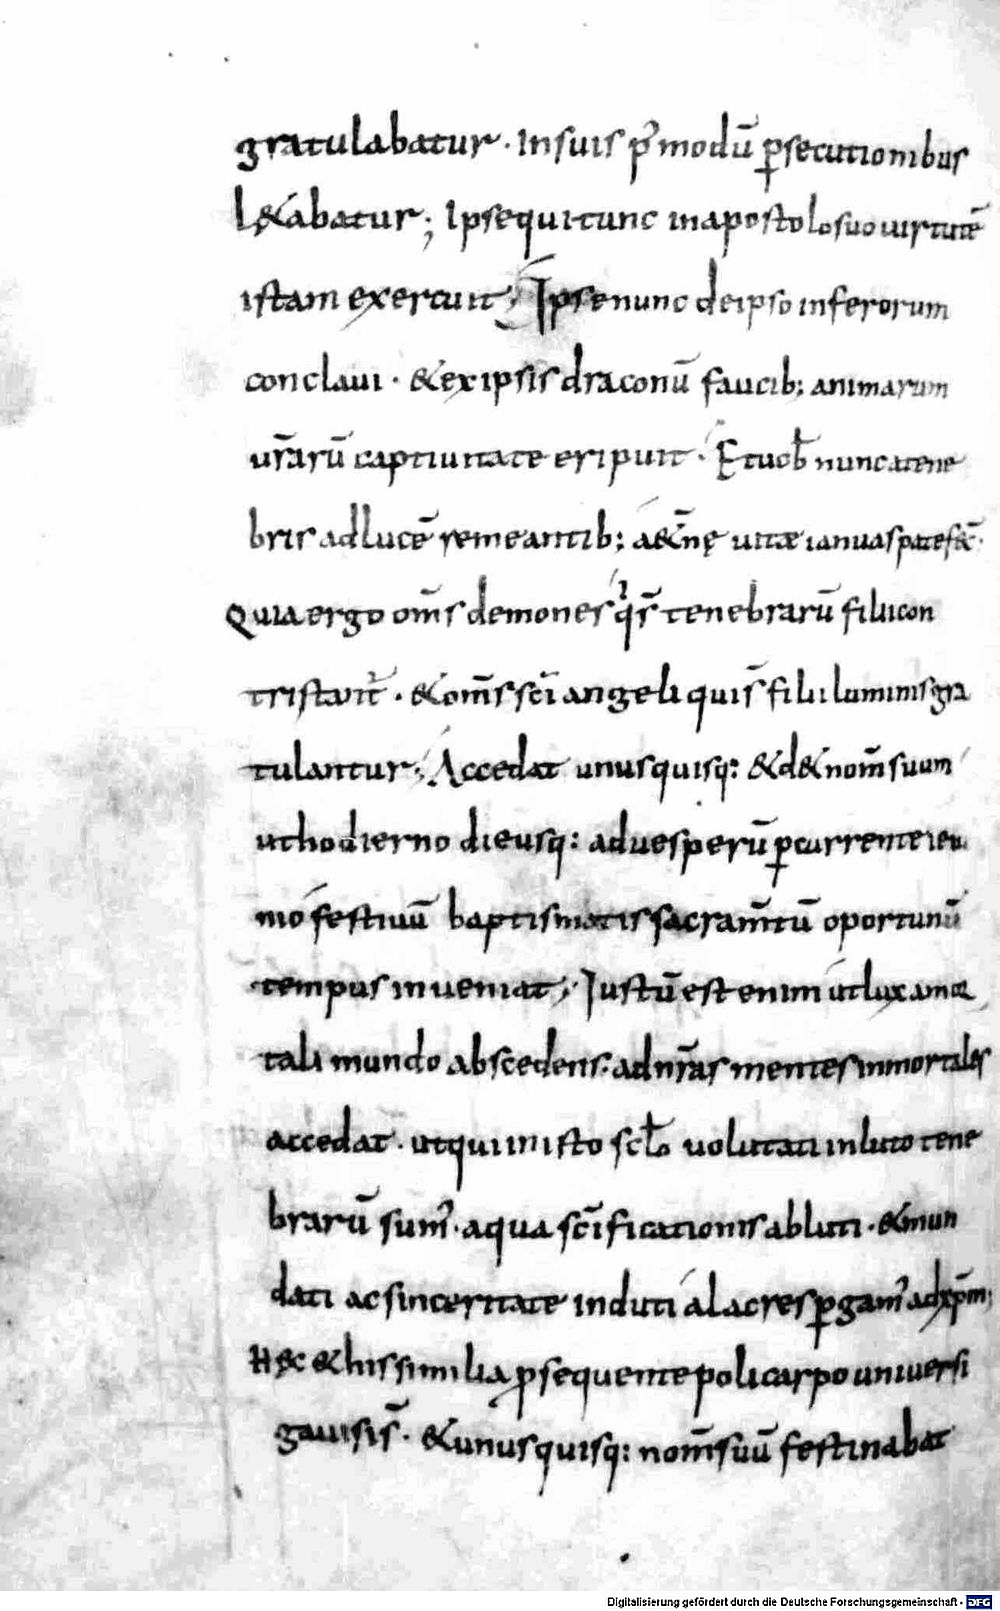 gratulabatur · Insuis p̄modū ꝑsecutionibus
l&abatur; Ipsequitunc inapostolosuouirtutē
istam exercuit; Ipsenunc deipso inferorum
conclaui · &exipsis draconū faucib; animarum
ur̄arū captiuitate eripuit · Etuob̄ nuncatene
bris adlucē remeantib; a&̄nę uitæ ianuaspatef&̄·
Quia ergo om̄s demones qs̄ tenebrarū filiicon
tristant̄ · &om̄s sc̄i angeli quis̄ filii luminisgra
tulantur; Accedat unusquisq: &d&nom̄suum
uthodierno dieusq: aduesperū ꝑcurrenteieiu
nio festiuū baptismatissacram̄tū oportunū
tempus inueniat; Iustū est enim utluxamor
tali mundo abscedens· adnr̄as mentesinmortales
accedat · utquiinisto scl̄o uolutati inlutotene
brarū sum̄· aqua sc̄ificationis abluti · &mun
dati acsinceritate induti alacres ꝑgam̄ adxp̄m;
Hęc &hissimilia ꝓsequentepolicarpouniuersi
gauisis̄ · &unusquisq: nom̄suū festinabat
Digitalisierung gefördert durch die Deutsche Forschungsgemeinschaft · DFG